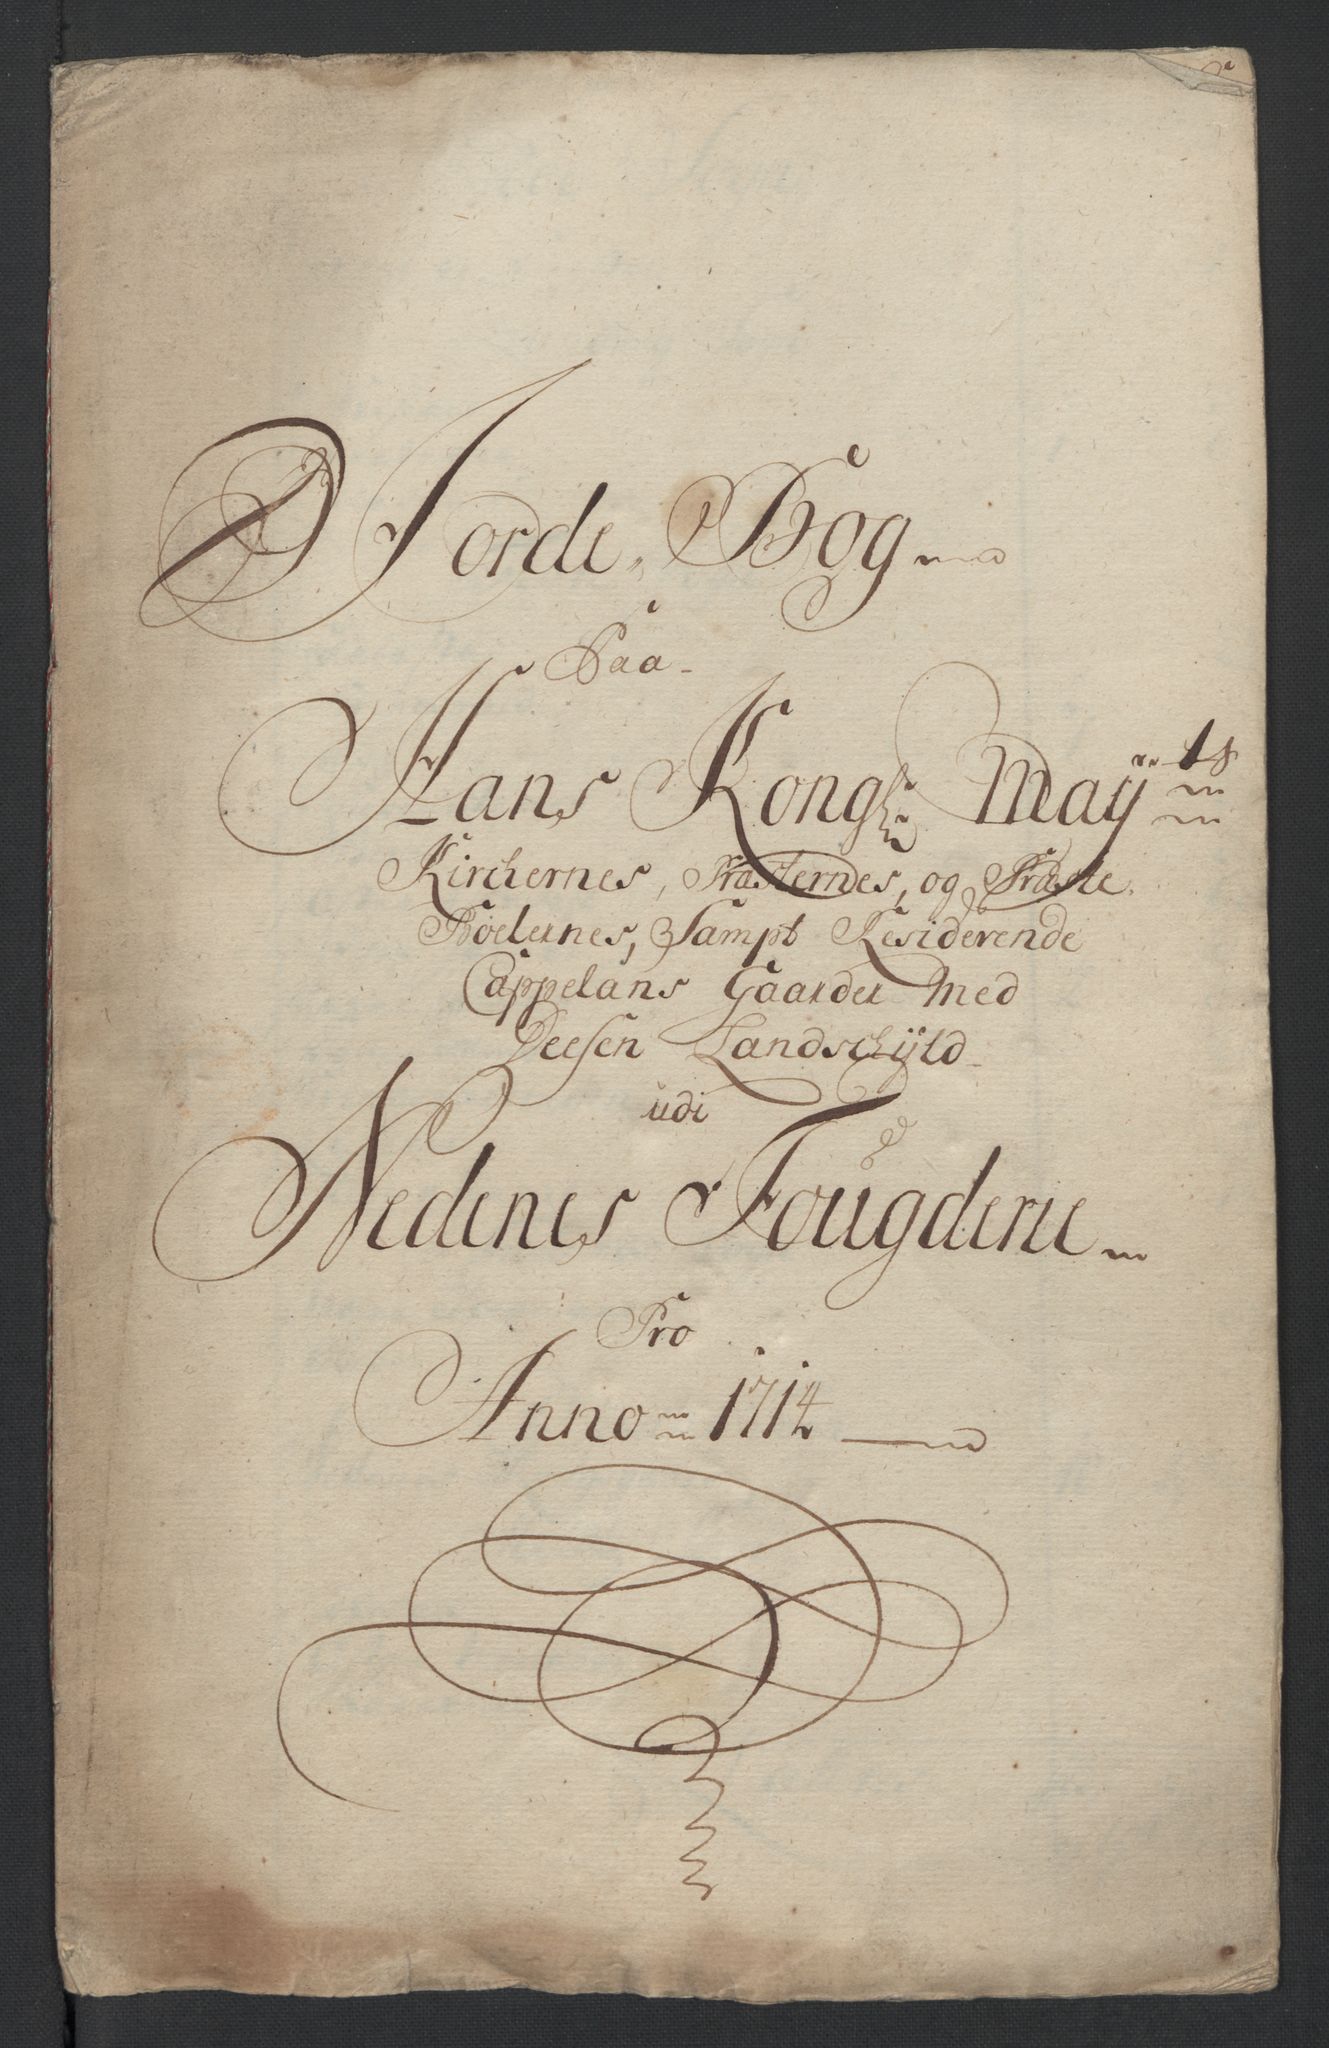 Jorde Bog
Paa
Hans Kongl: Maÿts
Kirchernes, Præsternes, og Præste
Boelernes, Sampt Residerende
Cappelans Gaarder Med
Deesen Landschÿld
udi
Nedenes Fougderie
Pro
Anno 1714